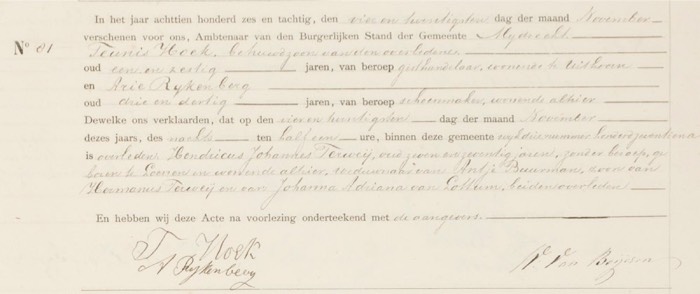 In het jaar achttien honderd zes en tachtig, den vier en twintigsten dag der maand November
N° 81 verschenen voor ons, Ambtenaar van den Burgerlijken Stand der Gemeente Mydrecht
Teunis Hoek, behuwdzoon van den overledene
oud een en dertig jaren, van beroep
en Arie Rykenberg
oud drie en dertig jaren, van beroep schoenmaker, wonende alhier
Dewelke ons verklaarden, dat op den vier en twintigsten dag der maand November
dezes jaars, des nachts ten half een ure, binnen deze gemeente
is overleden Hendricus Johannes Verweij, oud zeven en zeventig jaren, zonder beroep, ge
boren te Loenen en wonende alhier, weduwnaar van Antje Buurman, zoon van
Hermanus Verweij en van Johanna Adriana van Lokkum, beiden overleden
En hebben wij deze Acte na voorlezing onderteekend met de aangevers.
T Hoek
A Rykenberg